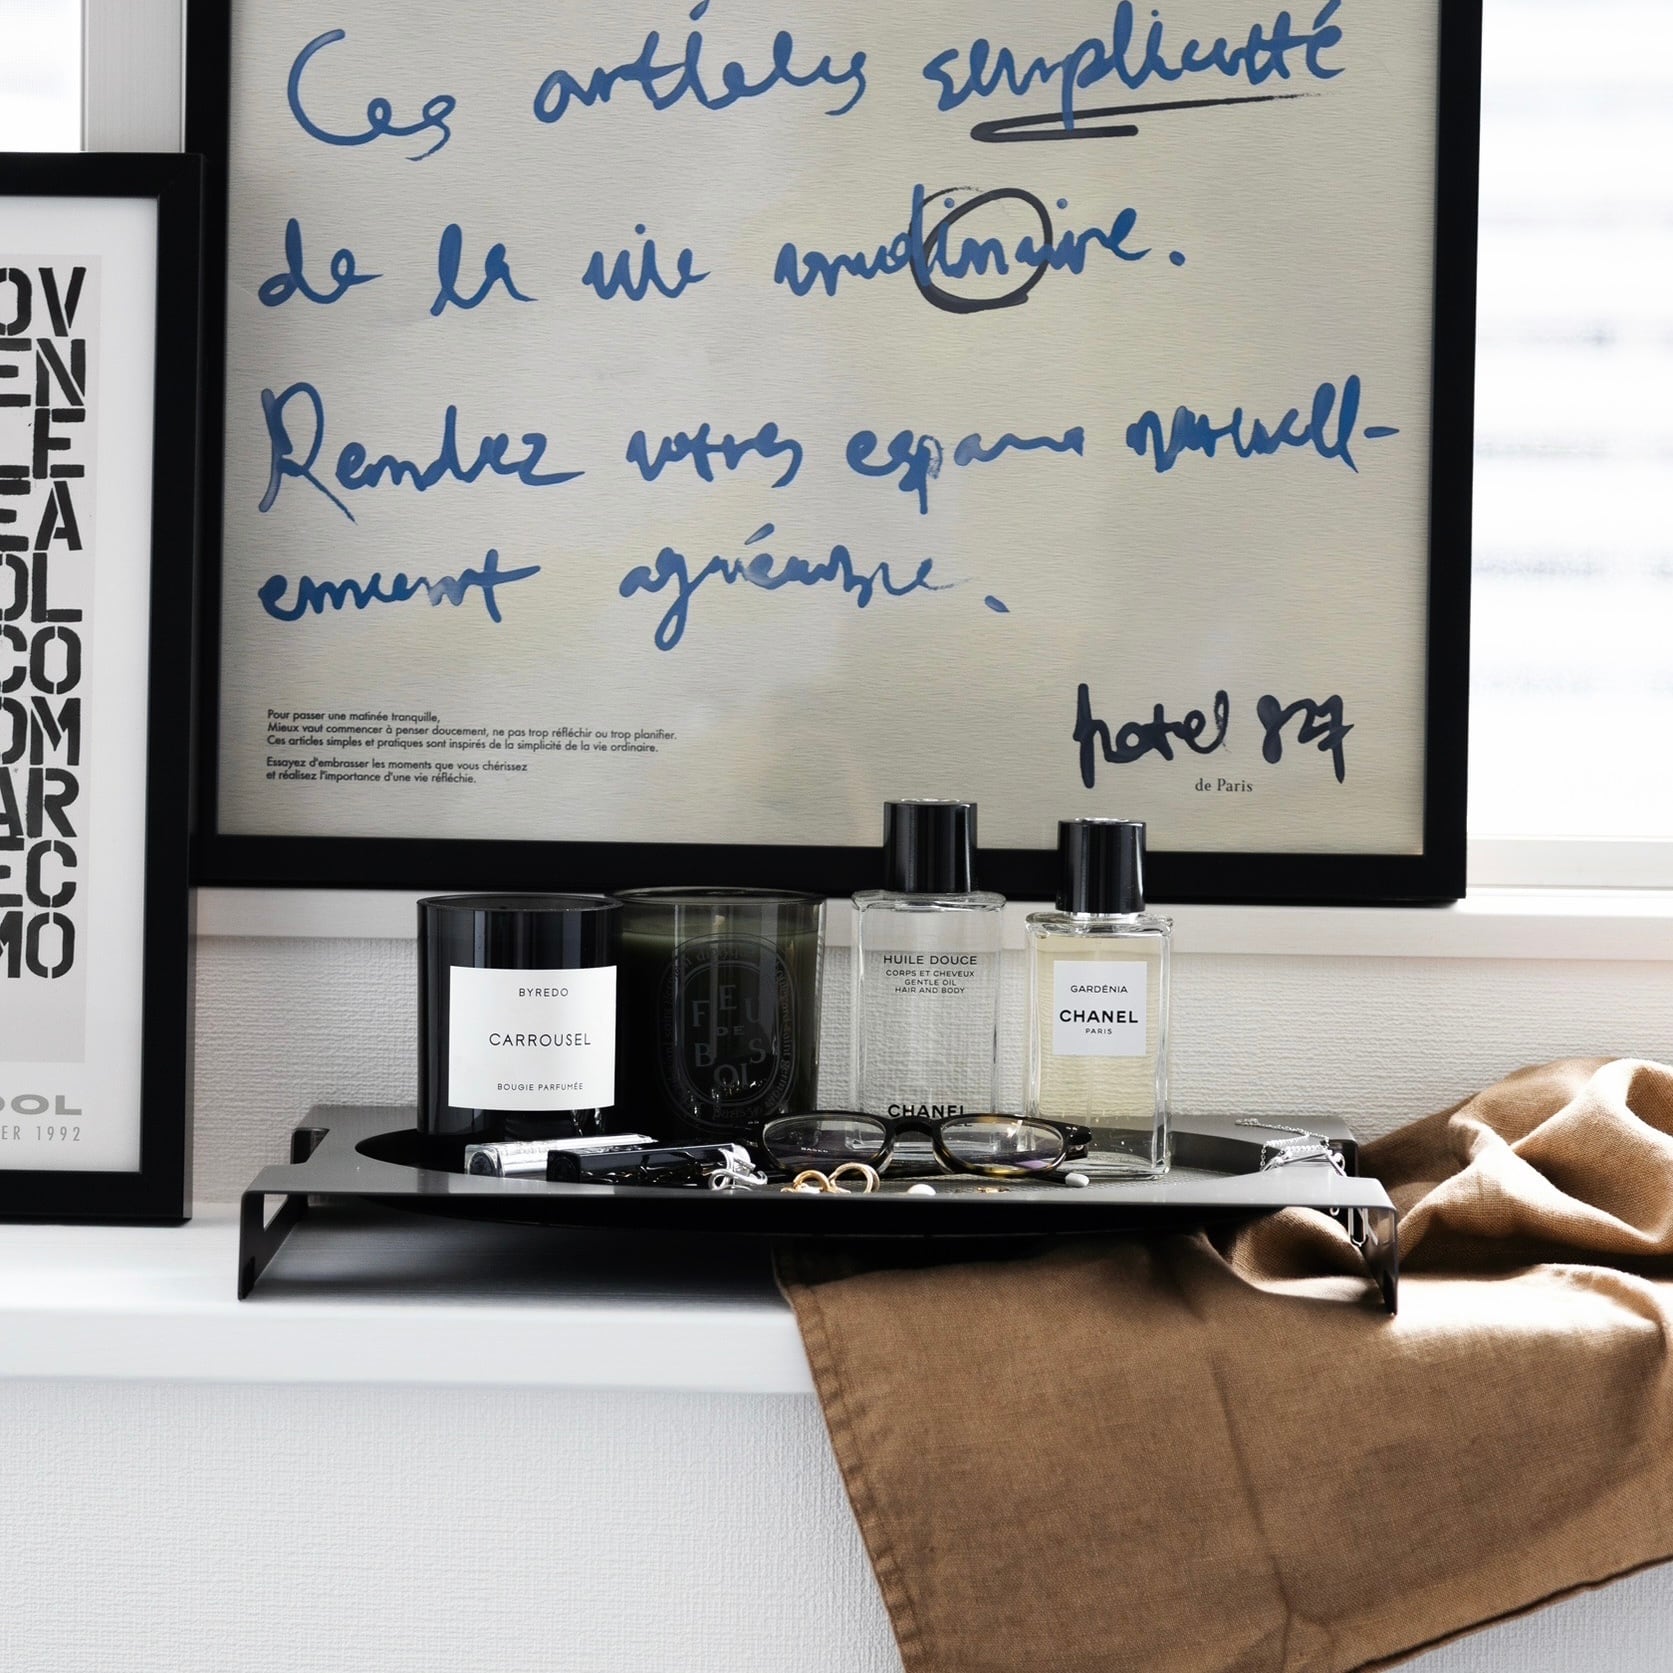 Ces articles simplicité
de la vie ordinaire.
Rendez votres espace
agréable.
Pour passer une matinée tranquille,
Mieux vaut commencer à penser doucement, ne pas trop réfléchir ou trop planifier.
Ces articles simples et pratiques sont inspirés de la simplicité de la vie ordinaire.
Essayez d'embrasser les moments que vous chérissez
et réalisez l'importance d'une vie réfléchie.
hotel 827
de Paris
OV
EN
LE
EA
OL
CO
OM
AR
EC
MO
OOL
ER 1992
BYREDO
CARROUSEL
BOUGIE PARFUMÉE
FEU
DE
BOIS
HUILE DOUCE
CORPS ET CHEVEUX
GENTLE OIL
HAIR AND BODY
CHANEL
GARDÉNIA
CHANEL
PARIS